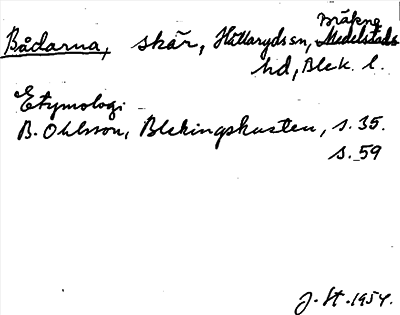 Bräkne
Bådarna, skär, Hällarydssn, Medelstads
hd, Blek. l.
Etymologi
B. Ohlsson, Blekingskusten, s. 35.
s. 59
J. St. 1954.